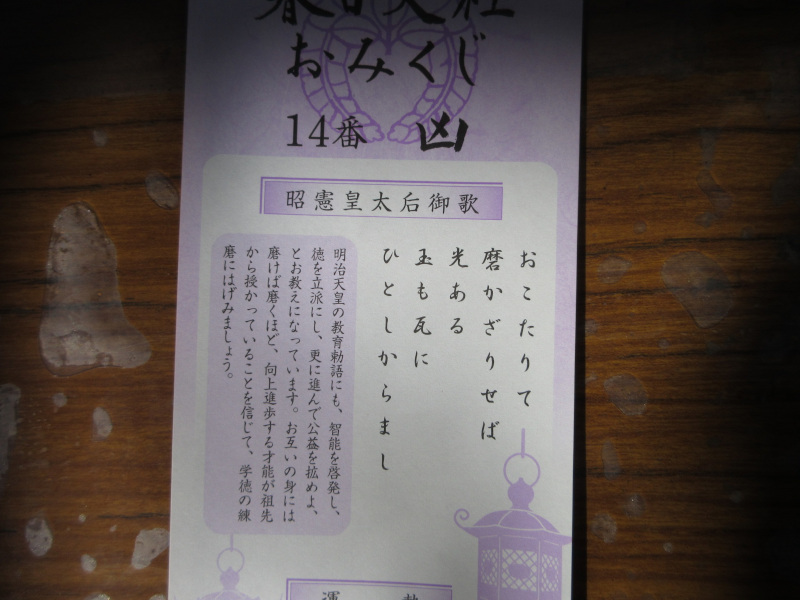 春日大社
おみくじ
14番 凶
昭憲皇太后御歌
おこたりて
磨かざりせば
光ある
玉も瓦に
ひとしからまし
明治天皇の教育勅語にも、智能を啓発し、
徳を立派にし、更に進んで公益を拡めよ、
とお教えになっています。お互いの身には
磨けば磨くほど、向上進歩する才能が祖先
から授かっていることを信じて、学徳の練
磨にはげみましょう。
運 勢